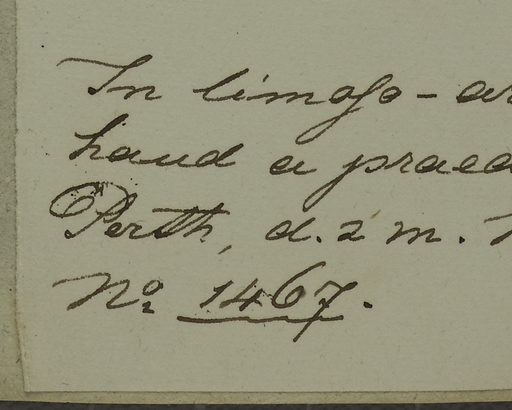 In limoso-ar
haud a praed
Perth, d. 2 m. N
No 1467.